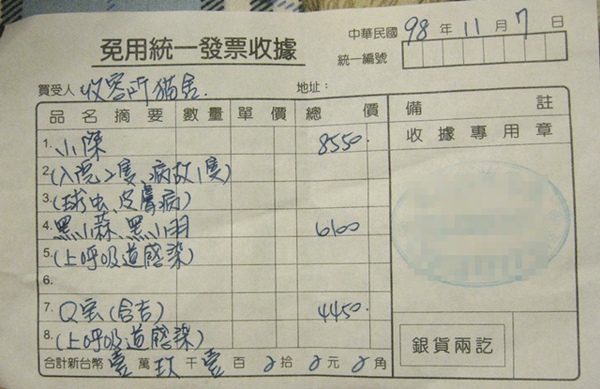 免用統一發票收據
中華民國 98 年 11 月 7 日
統一編號
買受人 收容所貓舍. 地址:
品名摘要 數量 單價 總價 備註
收據專用章
1. 小傑 8550.
2. (入院2隻、病故1隻)
3. (球虫、皮膚病)
4. 黑小蒜、黑小羽 6100
5. (上呼吸道感染)
6.
7. Q宝(含吉) 4450.
8. (上呼吸道感染)
合計新台幣 壹 萬 玖 千 壹 百 拾 元 角
銀貨兩訖